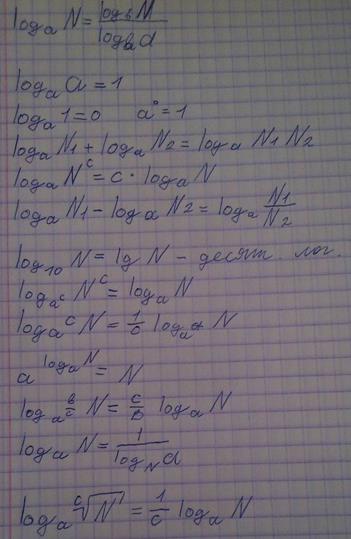 log_a N = log_b N / log_b a
log_a a = 1
log_a 1 = 0 a⁰ = 1
log_a N₁ + log_a N₂ = log_a N₁ N₂
log_a N^c = c · log_a N
log_a N₁ - log_a N₂ = log_a N₁/N₂
log₁₀ N = lg N - десят. лог.
log_{a^c} N^c = log_a N
log_{a^c} N = 1/c log_a N
a^{log_a N} = N
log_{a^{b/c}} N = c/b log_a N
log_a N = 1 / log_N a
log_a ᶜ√N = 1/c log_a N